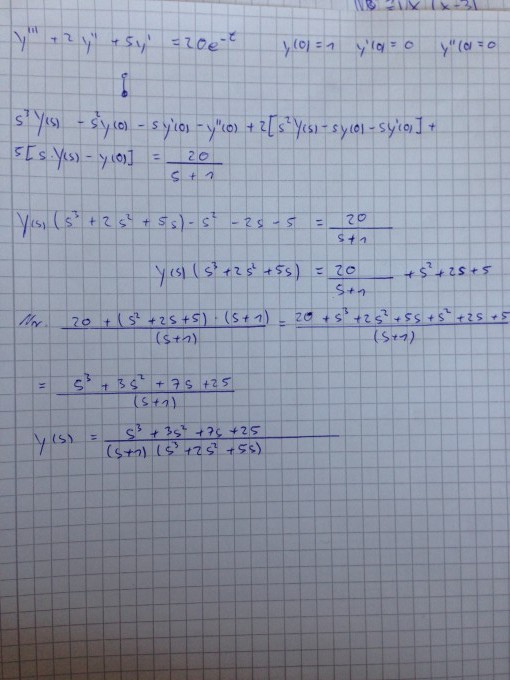 y''' + 2y'' + 5y' = 20e^-t y(0)=1 y'(0)=0 y''(0)=0
s³Y(s) - s²y(0) - sy'(0) - y''(0) + 2[s²Y(s) - sy(0) - sy'(0)] +
5[s·Y(s) - y(0)] = 20/(s+1)
Y(s)(s³ + 2s² + 5s) - s² - 2s - 5 = 20/(s+1)
Y(s)(s³ + 2s² + 5s) = 20/(s+1) + s² + 2s + 5
(20 + (s² + 2s + 5)·(s+1))/(s+1) = (20 + s³ + 2s² + 5s + s² + 2s + 5)/(s+1)
= (s³ + 3s² + 7s + 25)/(s+1)
Y(s) = (s³ + 3s² + 7s + 25)/((s+1)(s³ + 2s² + 5s))